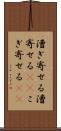 漕ぎ寄せる漕
寄せる こ
ぎ寄せる